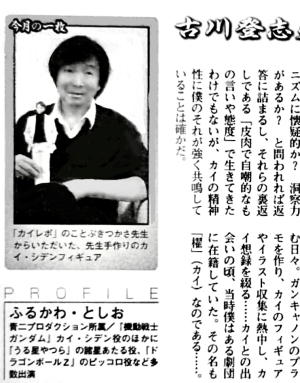 古川登志
今月の一枚
ニズムに懐疑的か？　洞察力
があるか？　と問われれば返
答に詰まるし、それらの裏返
しである「皮肉で自嘲的なも
の言いや態度」で生きてきた
わけでもないが、カイの精神
性に僕のそれが強く共鳴して
いることは確かだ。
「カイレポ」のことぶきつかさ先生
からいただいた、先生手作りのカ
イ・シデンフィギュア
む日々。ガンキャノンのプラ
モを作り、カイのフィギュア
やイラスト収集に熱中し、カ
イ想録を綴る……カイとの出
会いの頃、当時僕はある劇団
に在籍していた。その名も
「櫂」（カイ）なのである……。
PROFILE
ふるかわ・としお
青二プロダクション所属／『機動戦士
ガンダム』カイ・シデン役のほかに
『うる星やつら』の諸星あたる役、『ド
ラゴンボールZ』のピッコロ役など多
数出演